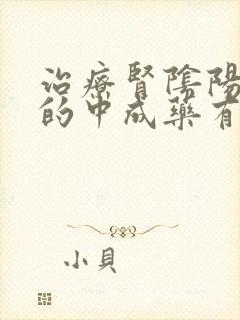 治療腎陰陽
的中成藥有
小貝